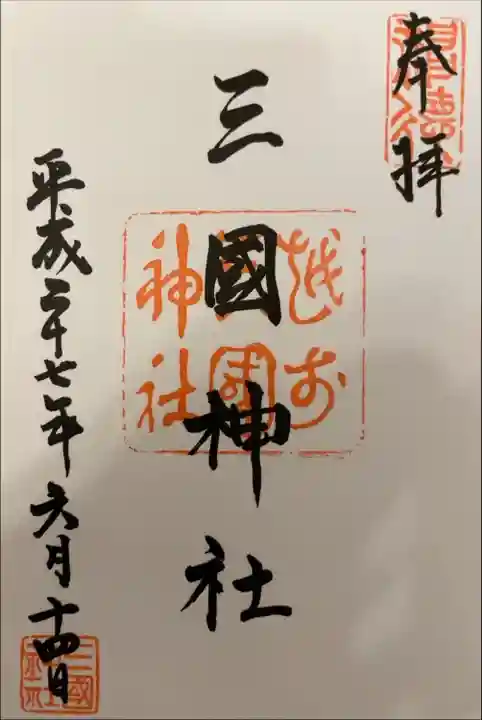 奉拝
三國神社
越前
三國
神社
平成二十七年六月十四日
三國
神社